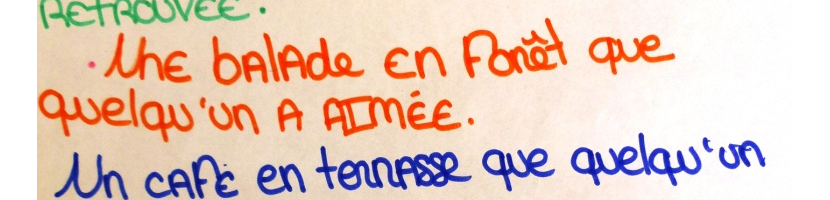 RETROUVÉE.
. UNE BALADE EN FORÊT QUE
QUELQU'UN A AIMÉE.
UN CAFÉ EN TERRASSE QUE QUELQU'UN